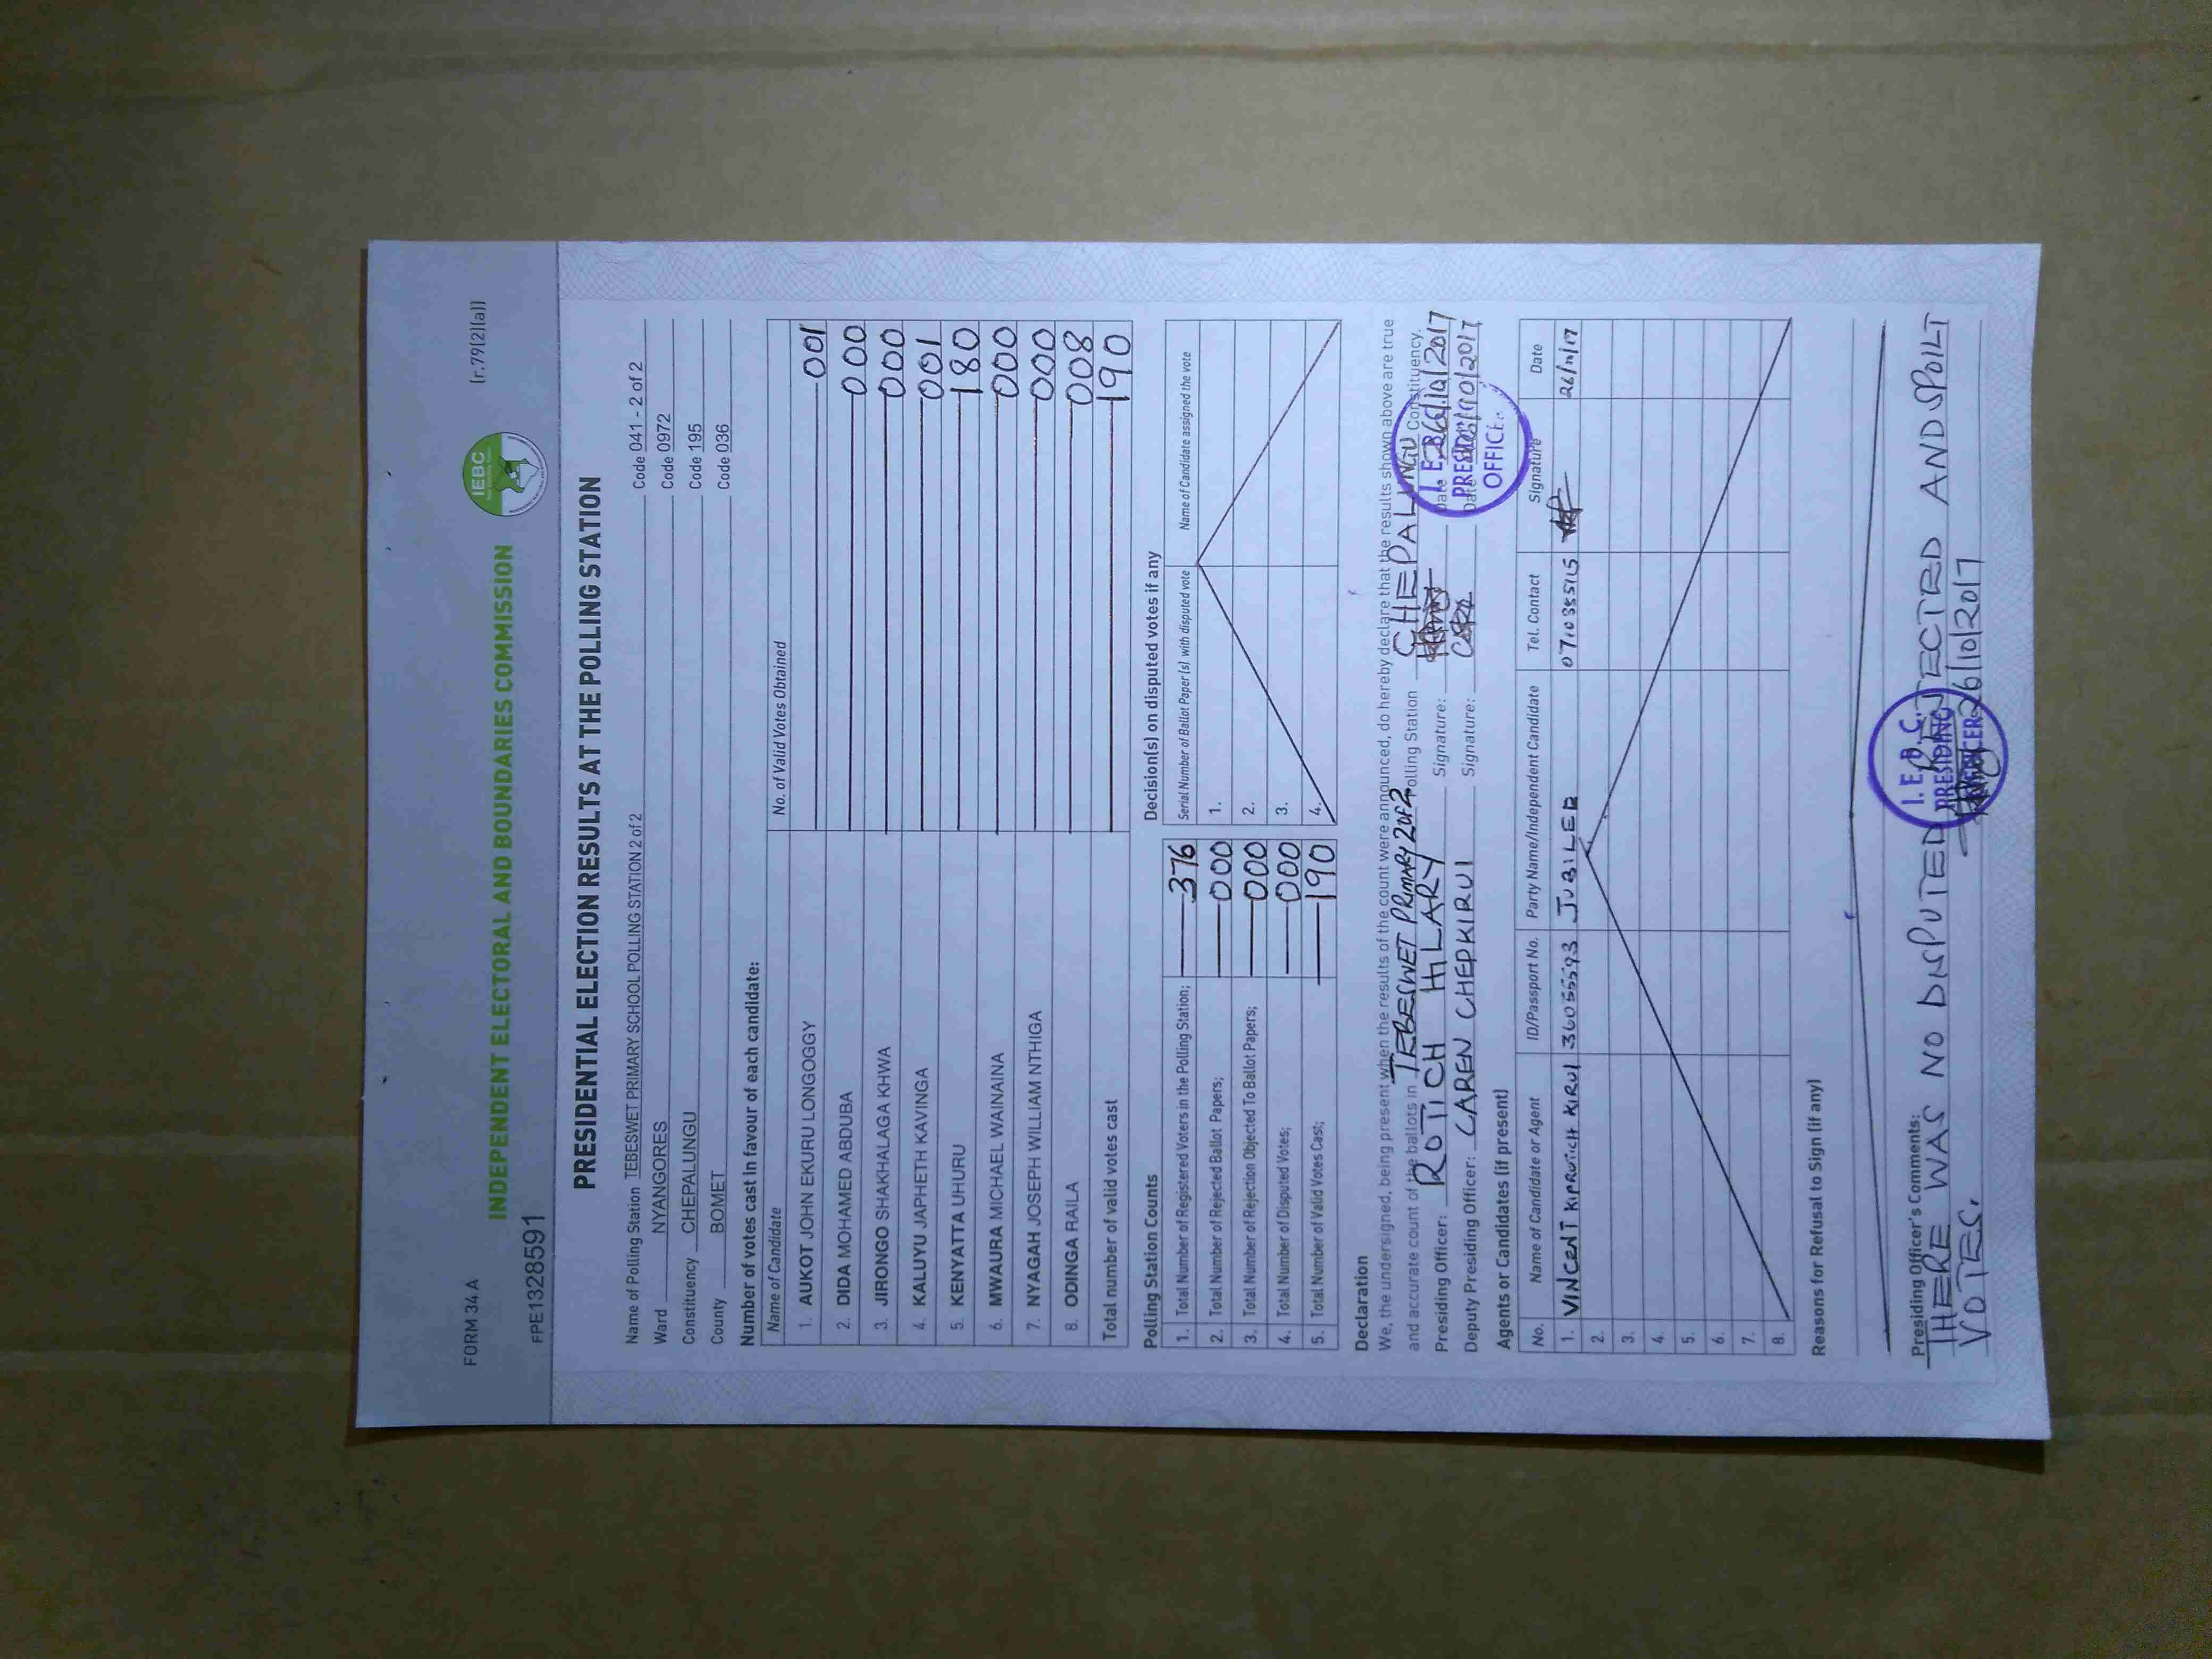 FORM 34 A
[r.79(2)(a)]
IEBC
INDEPENDENT ELECTORAL AND BOUNDARIES COMMISSION
FPE1328591
PRESIDENTIAL ELECTION RESULTS AT THE POLLING STATION
Name of Polling Station TEBESWET PRIMARY SCHOOL POLLING STATION 2 of 2 Code 041 - 2 of 2
Ward NYANGORES Code 0972
Constituency CHEPALUNGU Code 195
County BOMET Code 036
Number of votes cast in favour of each candidate:
Name of Candidate No. of Valid Votes Obtained
1. AUKOT JOHN EKURU LONGOGGY 001
2. DIDA MOHAMED ABDUBA 000
3. JIRONGO SHAKHALAGA KHWA 000
4. KALUYU JAPHETH KAVINGA 001
5. KENYATTA UHURU 180
6. MWAURA MICHAEL WAINAINA 000
7. NYAGAH JOSEPH WILLIAM NTHIGA 000
8. ODINGA RAILA 008
Total number of valid votes cast 190
Polling Station Counts
1. Total Number of Registered Voters in the Polling Station; 376
2. Total Number of Rejected Ballot Papers; 000
3. Total Number of Rejection Objected To Ballot Papers; 000
4. Total Number of Disputed Votes; 000
5. Total Number of Valid Votes Cast; 190
Decision(s) on disputed votes if any
Serial Number of Ballot Paper (s) with disputed vote Name of Candidate assigned the vote
1.
2.
3.
4.
Declaration
We, the undersigned, being present when the results of the count were announced, do hereby declare that the results shown above are true
and accurate count of the ballots in TEBESWET PRIMARY 2 OF 2 Polling Station CHEPALUNGU Constituency.
Presiding Officer: ROTICH HILARY Signature: Date 26/10/2017
Deputy Presiding Officer: CAREN CHEPKIRUI Signature: Date 26/10/2017
I. E. B. C.
PRESIDING
OFFICER
Agents or Candidates (if present)
No. Name of Candidate or Agent ID/Passport No. Party Name/Independent Candidate Tel. Contact Signature Date
1. VINCENT KIPRUTICH KIRUI JUBILEE
2.
3.
4.
5.
6.
7.
8.
Reasons for Refusal to Sign (if any)
Presiding Officer's Comments:
THERE WAS NO DISPUTED, REJECTED AND SPOILT
VOTES. 26/10/2017
I. E. B. C.
PRESIDING
OFFICER